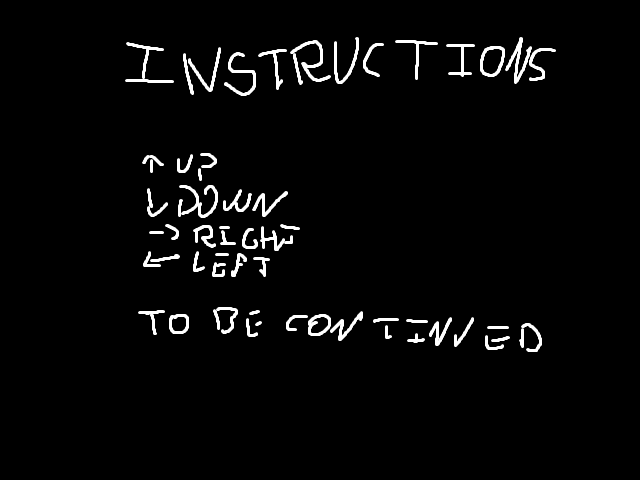 INSTRUCTIONS
↑ UP
↓ DOWN
→ RIGHT
← LEFT
TO BE CONTINUED